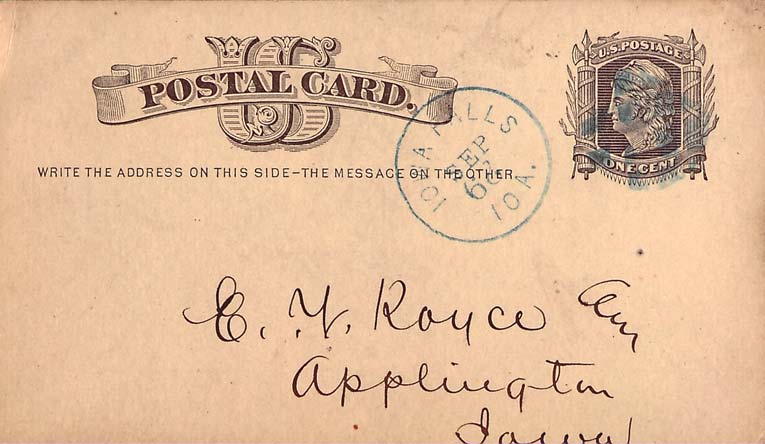 US
POSTAL CARD.
U.S. POSTAGE
ONE CENT
WRITE THE ADDRESS ON THIS SIDE–THE MESSAGE ON THE OTHER
IOWA FALLS
SEP
IOA.
E. Y. Royce
Applington
Iowa